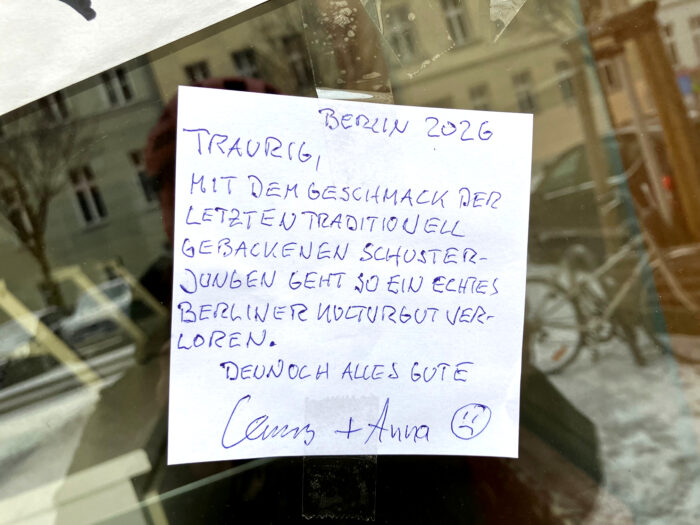 BERLIN 2026
TRAURIG,
MIT DEM GESCHMACK DER
LETZTEN TRADITIONELL
GEBACKENEN SCHUSTER-
JUNGEN GEHT SO EIN ECHTES
BERLINER KULTURGUT VER-
LOREN.
DENNOCH ALLES GUTE
+ Anna